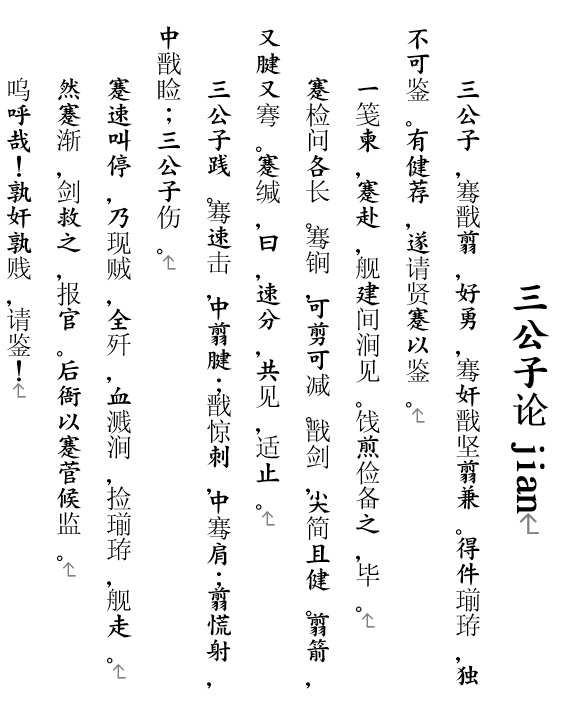 三公子论 jian
三公子，骞戬翦，好勇，骞奸戬坚翦兼。得件瑐珔，独
不可鉴。有健荐，遂请贤蹇以鉴。
一笺柬，蹇赴，舰建间涧见。饯煎俭备之，毕。
蹇检问各长。骞锏，可剪可减。戬剑，尖简且健。翦箭，
又腱又骞。蹇缄，曰，速分，共见，适止。
三公子践。骞速击，中翦腱；戬惊刺，中骞肩；翦慌射，
中戬睑；三公子伤。
蹇速叫停，乃现贼，全歼，血溅涧，捡瑐珔，舰走。
然蹇渐，剑救之，报官。后衙以蹇菅候监。
呜呼哉！孰奸孰贱，请鉴！